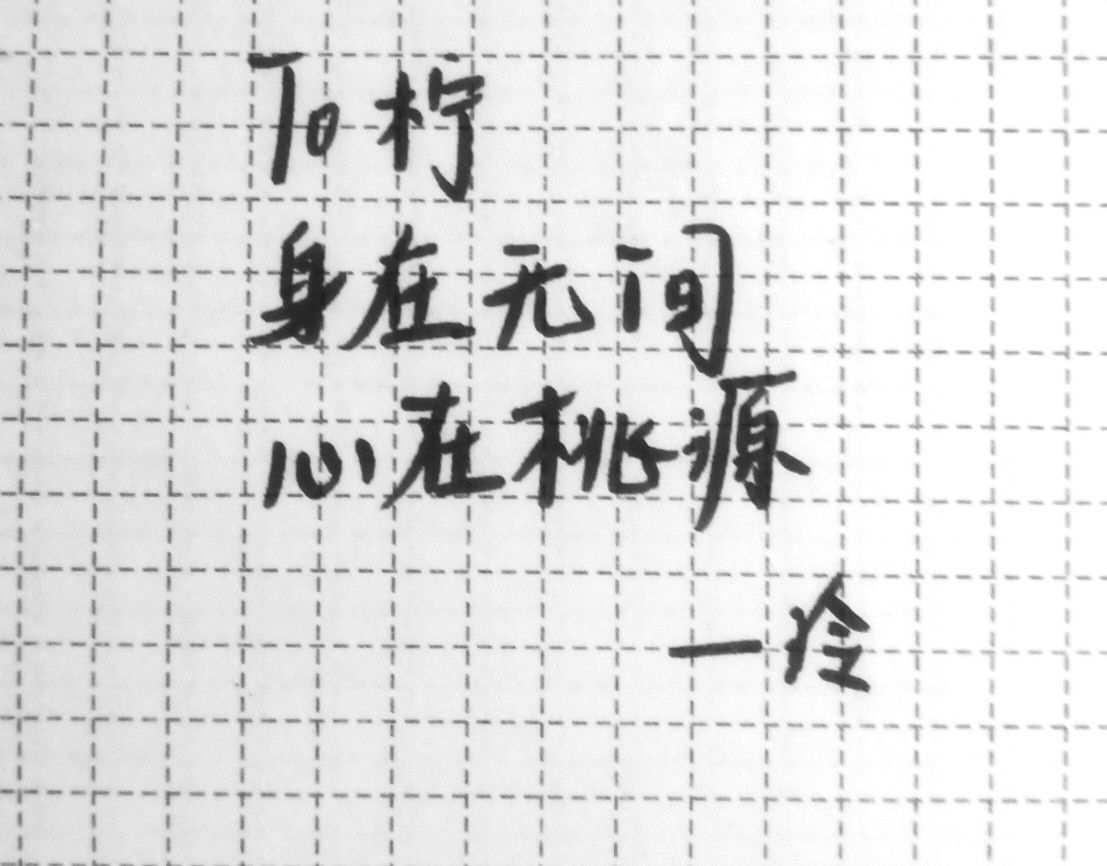 To柠
身在无间
心在桃源
一泠